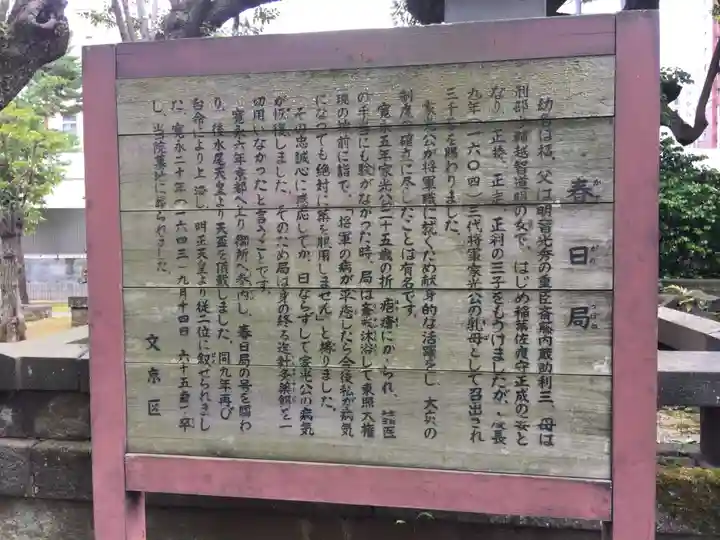 春日局
かすがのつぼね
幼名は福、父は明智光秀の重臣斎藤内蔵助利三、母は
刑部少輔越智道明の女で、はじめ稲葉佐渡守正成の妻と
なり、正勝、正定、正利の三子をもうけましたが、慶長
九年（一六〇四）三代将軍家光公の乳母として召出され
三千石を賜わりました。
家光公が将軍職に就くため献身的な活躍をし、大奥の
制度の確立に尽したことは有名です。
寛永五年家光公二十五歳の折、疱瘡にかかられ、諸医
の手当にも験がなかった時、局は斎戒沐浴して東照大権
現の神前に詣で、「将軍の病が平癒したら今後私が病気
になっても絶対に薬を服用しません」と祷りました。
その忠誠心に感応してか、日ならずして家光公の病気
が恢復しました。そのため局は身の終る迄鍼灸薬餌を一
切用いなかったと言うことです。
寛永六年京都へ上り御所へ参内し、春日局の号を賜わ
り、後水尾天皇より天盃を頂戴しました。同九年再び
台命により上洛し、明正天皇より従二位に叙せられまし
た。寛永二十年（一六四三）九月十四日　六十五歳で卒
し、当院墓地に葬られました。
文京区